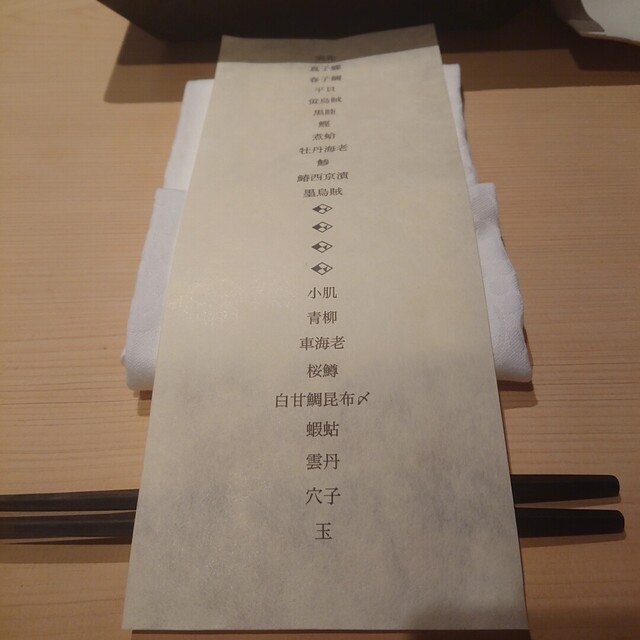 真子鰈
春子鯛
平目
墨烏賊
黒睦
鰹
煮蛤
牡丹海老
鯵
鰆西京漬
墨烏賊
小肌
青柳
車海老
桜鱒
白甘鯛昆布〆
蝦蛄
雲丹
穴子
玉